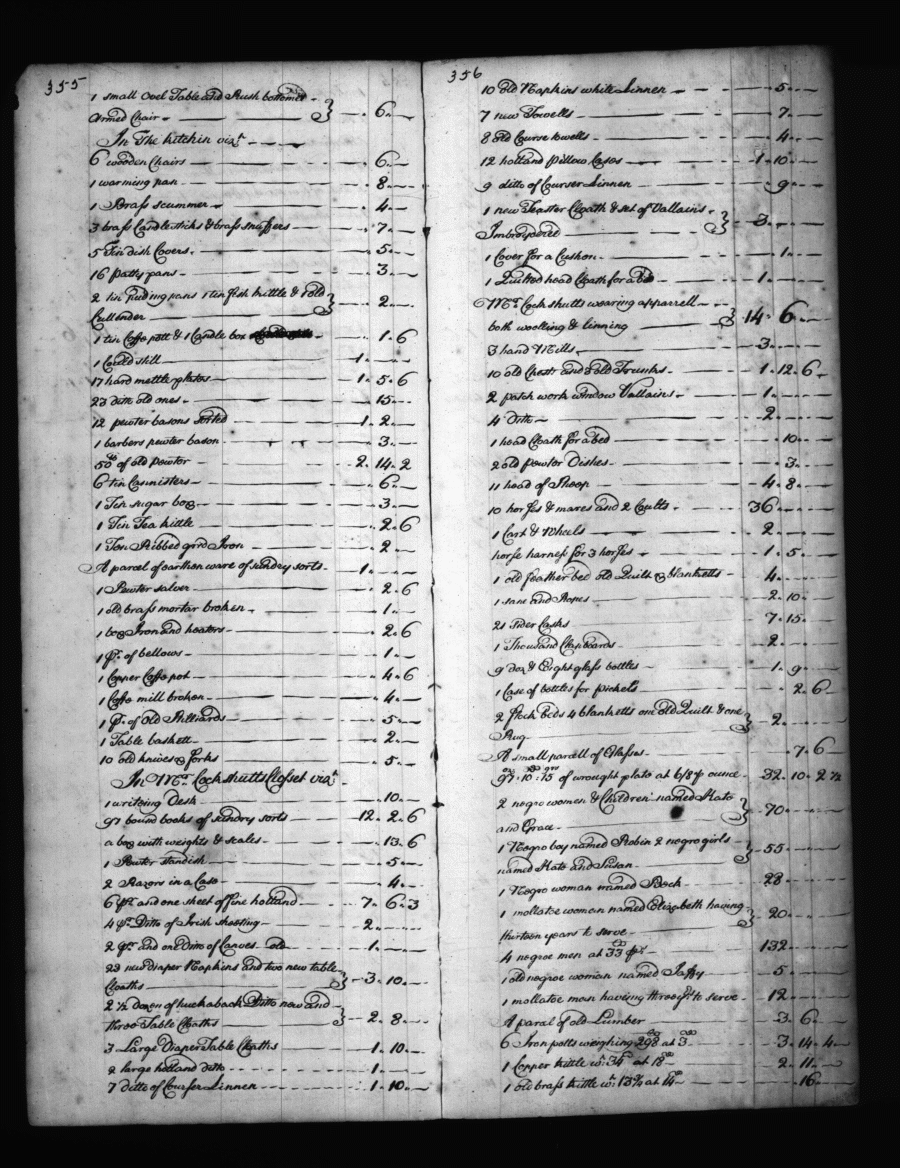 355
1 small Ovel Table and Rush bottomed
Armed Chair — 6
In The Kitchin vizt.
6 wooden Chairs — 6
1 warming pan — 8
1 Brass scummer — 4
3 brass Candlesticks & brass snuffers — 7
5 Tin dish Covers — 5
16 Patty pans — 3
2 tin puding pans 1 tin fish kittle & 1 old
Cullender — 2
1 tin Coffe pott & 1 Candle box — 1.6
1 Could still — 1
17 hard mettle plates — 1.5.6
23 ditto old ones — 15
12 pewter basons sorted — 1.2
1 barbers pewter bason — 3
50 lb of old pewtor — 2.14.2
6 tin Cannisters — 6
1 Tin sugar box — 3
1 Tin Tea kittle — 2.6
1 Ribbed grrd Iron — 2
A parcel of earthen ware of sundry sorts — 1
1 Pewter salver — 2.6
1 old brass mortar broken — 1
1 box Iron and heaters — 2.6
1 pr. of bellows — 1
1 Copper Coffe pot — 4.6
1 Coffe mill broken — 4
1 pr. of old Stilliards — 5
1 Table baskett — 2
10 old knives & forks — 5
In Mr. Cockshutts Closset vizt.
1 writeing Desk — 10
97 bound books of sundry sorts — 12.2.6
a box with weights & scales — 13.6
1 Pewter standish — 5
2 Razors in a Case — 4
6 pr. and one sheet of fine holland — 7.6.3
4 pr. Ditto of Irish sheeting — 2
2 pr. and one ditto of Canves old — 1
23 new diaper Napkins and two new table
Cloaths — 3.10
2 ½ dozen of huckaback Ditto new and
three Table Cloaths — 2.8
3 Large Diaper Table Cloaths — 1.10
2 large holland ditto — 1
7 ditto of Courser Linnen — 1.10
356
10 old Napkins white Linnen — 5
7 new Towells — 7
8 old Course towells — 4
12 holland Pillow Cases — 1.10
9 ditto of Courser Linnen — 9
1 new Teaster Cloath & set of Vallains
Imbroydered — 3
1 Cover for a Cushon — 1
1 Quilted head Cloath for a bed — 1
Mr. Cockshutts wearing apparrell
both woolling & linning — 14.6
3 hand Mills — 3
10 old Chests and old Trunks — 1.12.6
2 patch work window Vallains — 1
4 Ditto — 2
1 head Cloath for a bed — 10
2 old Pewtor Dishes — 3
11 head of Sheep — 4.8
10 horses & mares and 2 Coults — 36
1 Cart & Wheels — 2
horse harness for 3 horses — 1.5
1 old feather bed old Quilt & blanketts — 4
1 sane and Ropes — 2.10
21 Sider Casks — 7.15
1 Thousand Clapboards — 2
9 doz & Eight glass bottles — 1.9
1 Case of bottles for pickels — 2.6
2 flock beds 4 blanketts one old Quilt & one
Rug — 2
A small parcell of Glasses — 7.6
97 oz : 10 : 15 grs of wrought plate at 6/8 p ounce — 32.10.2 ½
2 negro women & Children named Kate
and Grace — 70
1 Negro boy named Robin 2 negro girls
named Kate and Susan — 55
1 Negro woman named Beck — 28
1 mollatoe woman named Elizabeth having
thirteen years to serve — 20
4 negroe men at 33 pr. — 132
1 old negroe woman named — 5
1 mollatoe man having three yrs. to serve — 12
A parcel of old Lumber — 3.6
6 Iron potts weighing 298 at 3d — 3.14.4
1 Copper kittle wt. 34 at 18d — 2.11
1 old brass kittle wt. 13¾ at 14d — 16